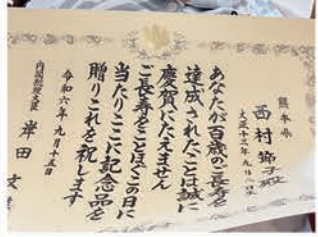 熊本県
西村 節子殿
大正十三年九月八日生
あなたが百歳のご長寿を
達成されたことは誠に
慶賀にたえません
ご長寿をことほぐこの日に
当たりここに記念品を
贈りこれを祝します
令和六年九月十五日
内閣総理大臣 岸田 文